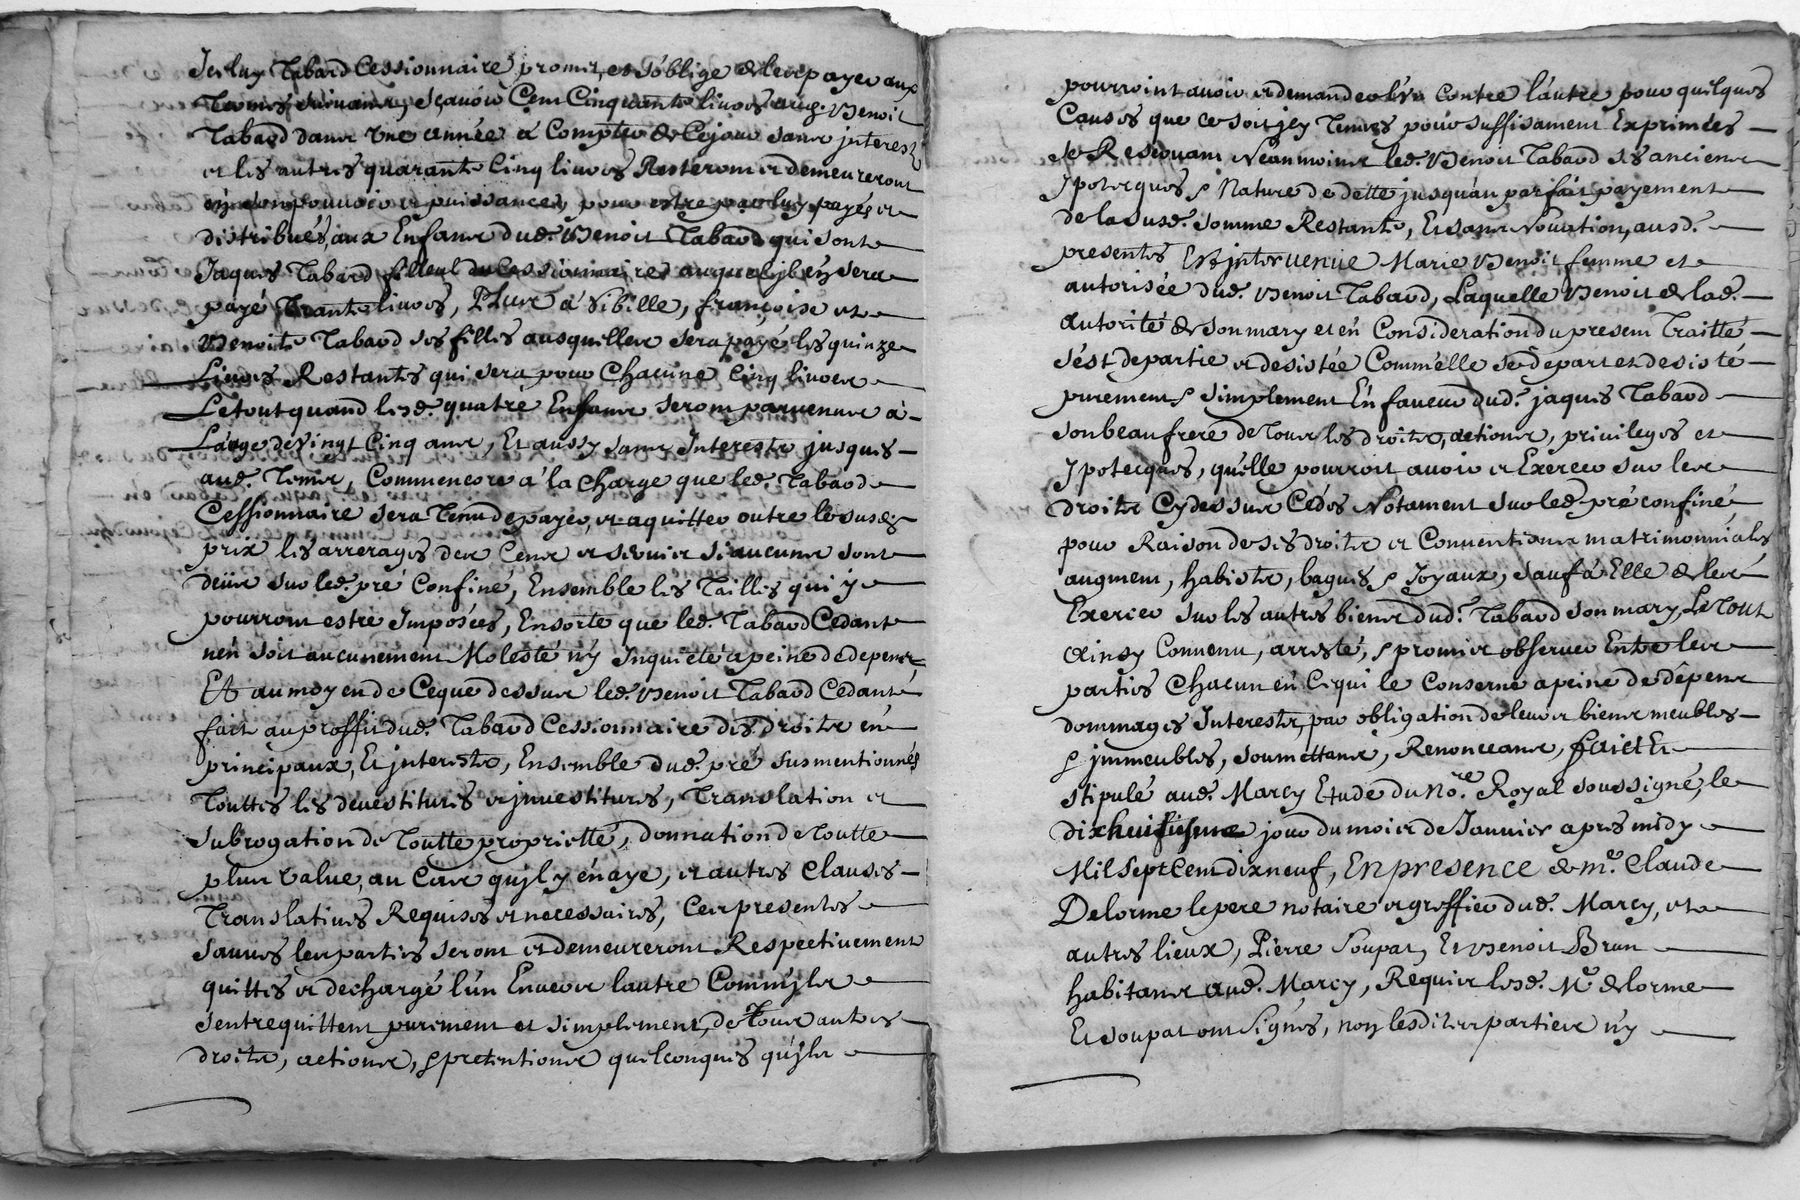 Icelluy Tabard Cessionnaire promis, et s'oblige de les payer aux
Termes suivants, Sçavoir Cent Cinquante livres aud. Benoit
Tabard dans Une année à Compter de Cejour sans jnterest,
et les autres quarante Cinq livres Resteront et demeureront
en son pouvoir et puissance, pour estre par luy payés et
distribués aux Enfans dud. Benoit Tabard qui sont
Jaques Tabard filleul du Cessionnaire auquel jl en sera
payé Trante livres, Plus à Sibille, françoise et
Benoite Tabard ses filles ausquelles sera payé les quinze
Livres Restants qui sera pour Chacune Cinq livres
Le tout quand lesd. quatre Enfans seront parvenus à
L'aage de vingt Cinq ans, Et aussy sans Interests jusques
aud. Temps, Comm'encore à la Charge que led. Tabard
Cessionnaire sera Tenu de payer, et aquitter outre le susd.
prix les arrerages des Cens et servis si aucuns sont
deüs sur led. pré Confiné, Ensemble les Tailles qui y
pourront estre Imposées, Ensorte que led. Tabard Cedant
n'en soit aucunement Molesté n'y Inquiété a peine de depens,
Et au moyen de Ceque dessus led. Benoit Tabard Cedant
fait au proffit dud. Tabard Cessionnaire desd. droits en
principaux, Et jnterests, Ensemble dud. pré susmentionnés
Touttes les devestitures et jnvestitures, Translation et
subrogation de Toutte proprietté, donnation de Toutte
plus value, au Cas qu'jl y en aye, et autres Clauses
Translatives Requises et necessaires, Ces presentes
sauves les parties seront et demeureront Respectivement
quittes et dechargé l'un Envers l'autre Comm'jls
s'entrequittent purement et simplement, de Tous autres
droits, actions, & pretentions quelconques qu'jls
pourroint avoir et demander l'un Contre l'autre pour quelques
Causes que ce soit jcy Tenues pour suffisament Exprimées
se Reservant Neanmoins led. Benoit Tabard ses anciens
Ipotecques & Nature de dette jusqu'au parfait payement
de la susd. somme Restante, Et sans Novation, ausd.
presentes Est jntervenue Marie Benoit femme et
autorisée dud. Benoit Tabard, Laquelle Benoit de lad.
autorité de son mary et en Consideration du present Traitté
s'est departie et desistée Comm'elle se depart et desiste
purement & simplement En faveur dud. jaques Tabard
son beaufrere de Tous les droits, actions, privileges et
Ipotecques, qu'elle pourroit avoir et Exercer sur les
droits Cydessus Cédés Notament sur led. pré confiné
pour Raison de ses droits et Conventions matrimonniales
augment, habits, bagues & Joyaux, sauf à Elle de les
Exercer sur les autres biens dud. Tabard son mary, Le Tout
Ainsy Convenu, arresté, & promis observer Entre les
parties Chacun en Cequi le Conserne a peine de dêpens
dommages Interests, par obligation de leurs biens meubles
& jmmeubles, soumettans, Renonceans, faict Et
stipulé aud. Marcy Etude du No.re Royal soussigné, le
dixhuitiesme jour du mois de Janvier apres midy
Mil Sept Cent dixneuf, En presence de m.e Claude
Delorme le pere notaire et greffier dud. Marcy, et
autres lieux, Pierre Soupat, Et Benoit Brun
habitans aud. Marcy, Requis lesd. M.e delorme
Et soupat ont signés, non lesdites parties n'y